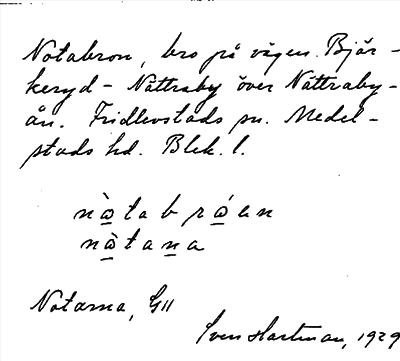 Notabron, bro på vägen Bjär-
keryd - Nättraby över Nättraby-
ån. Fridlevstads sn. Medel-
stads hd. Blek. l.
nò̲tabró̲an
nò̲tan̲a
Notarna, GII
Sven Hartman, 1929